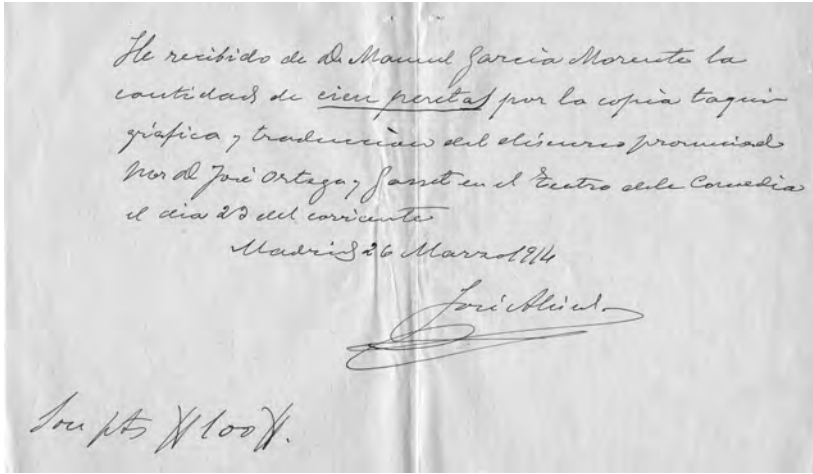 He recibido de D. Manuel García Morente la
cantidad de cien pesetas por la copia taqui
gráfica y traducción del discurso pronunciado
por D. José Ortega y Gasset en el Teatro de la Comedia
el día 23 del corriente
Madrid 26 Marzo 1914
José
Son pts 100